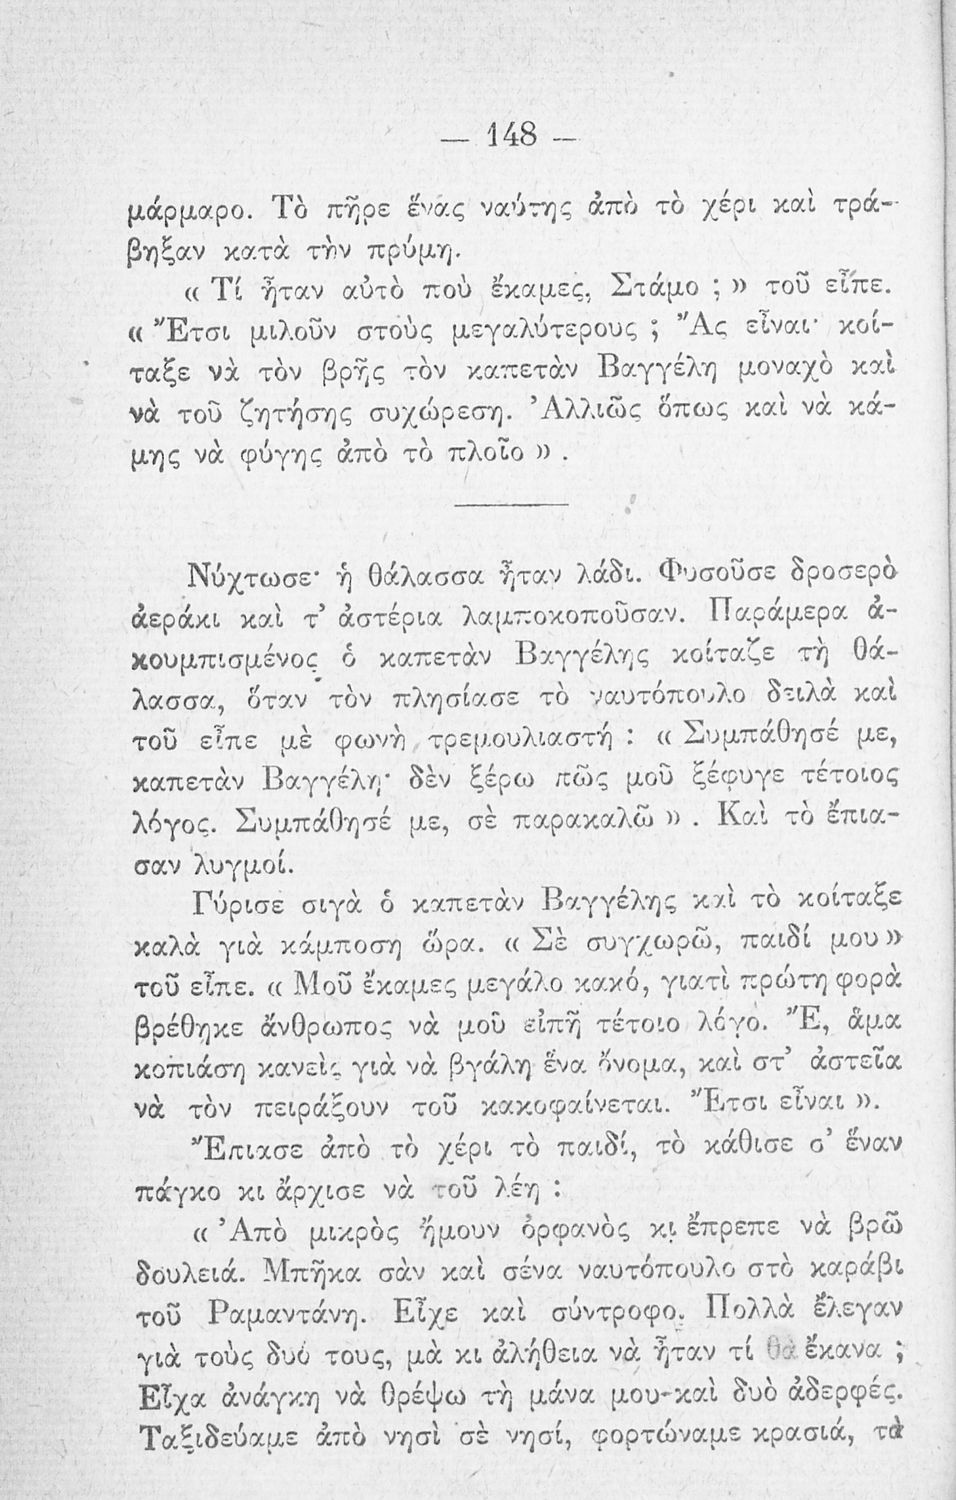 — 148 —
μάρμαρο. Τὸ πῆρε ἕνας ναύτης ἀπὸ τὸ χέρι καὶ τρά-
βηξαν κατὰ τὴν πρύμη.
« Τί ἦταν αὐτὸ ποὺ ἔκαμες, Στάμο ; » τοῦ εἶπε.
« Ἔτσι μιλοῦν στοὺς μεγαλύτερους ; Ἂς εἶναι· κοί-
ταξε νὰ τὸν βρῇς τὸν καπετὰν Βαγγέλη μοναχὸ καὶ
νὰ τοῦ ζητήσης συχώρεση. Ἀλλιῶς ὅπως καὶ νὰ κά-
μης νὰ φύγης ἀπὸ τὸ πλοῖο » .
Νύχτωσε· ἡ θάλασσα ἦταν λάδι. Φυσοῦσε δροσερὸ
ἀεράκι καὶ τ’ ἀστέρια λαμποκοποῦσαν. Παράμερα ἀ-
κουμπισμένος ὁ καπετὰν Βαγγέλης κοίταζε τὴ θά-
λασσα, ὅταν τὸν πλησίασε τὸ ναυτόπουλο δειλὰ καὶ
τοῦ εἶπε μὲ φωνὴ τρεμουλιαστή : « Συμπάθησέ με,
καπετὰν Βαγγέλη· δὲν ξέρω πῶς μοῦ ξέφυγε τέτοιος
λόγος. Συμπάθησέ με, σὲ παρακαλῶ » . Καὶ τὸ ἔπια-
σαν λυγμοί.
Γύρισε σιγὰ ὁ καπετὰν Βαγγέλης καὶ τὸ κοίταξε
καλὰ γιὰ κάμποση ὥρα. « Σὲ συγχωρῶ, παιδί μου »
τοῦ εἶπε. « Μοῦ ἔκαμες μεγάλο κακό, γιατὶ πρώτη φορὰ
βρέθηκε ἄνθρωπος νὰ μοῦ εἰπῆ τέτοιο λόγο. Ἔ, ἅμα
κοπιάση κανεὶς γιὰ νὰ βγάλη ἕνα ὄνομα, καὶ στ’ ἀστεῖα
νὰ τὸν πειράξουν τοῦ κακοφαίνεται. Ἔτσι εἶναι ».
Ἔπιασε ἀπὸ τὸ χέρι τὸ παιδί, τὸ κάθισε σ’ ἕναν
πάγκο κι ἄρχισε νὰ τοῦ λέη :
« Ἀπὸ μικρὸς ἤμουν ὀρφανὸς κι ἔπρεπε νὰ βρῶ
δουλειά. Μπῆκα σὰν καὶ σένα ναυτόπουλο στὸ καράβι
τοῦ Ραμαντάνη. Εἶχε καὶ σύντροφο. Πολλὰ ἔλεγαν
γιὰ τοὺς δυό τους, μὰ κι ἀλήθεια νὰ ἦταν τί θὰ ἔκανα ;
Εἶχα ἀνάγκη νὰ θρέψω τὴ μάνα μου καὶ δυὸ ἀδερφές.
Ταξιδεύαμε ἀπὸ νησὶ σὲ νησί, φορτώναμε κρασιά, τὰ